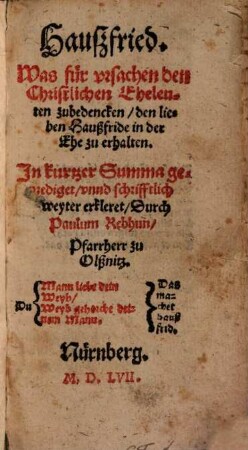 Haußfried.
Was für vrsachen den
Christlichen Eheleu-
ten zubedencken / den lie-
ben Haußfride in der
Ehe zu erhalten.
In kurtzer Summa ge-
prediget / vnnd schrifftlich
weyter erkleret / Durch
Paulum Rebhun /
Pfarrherr zu
Olßnitz.
Du
Mann liebe dein
Weyb /
Weyb gehorche dei-
nem Mann.
Das
ma-
chet
hauß
frid.
Nürnberg.
M. D. LVII.